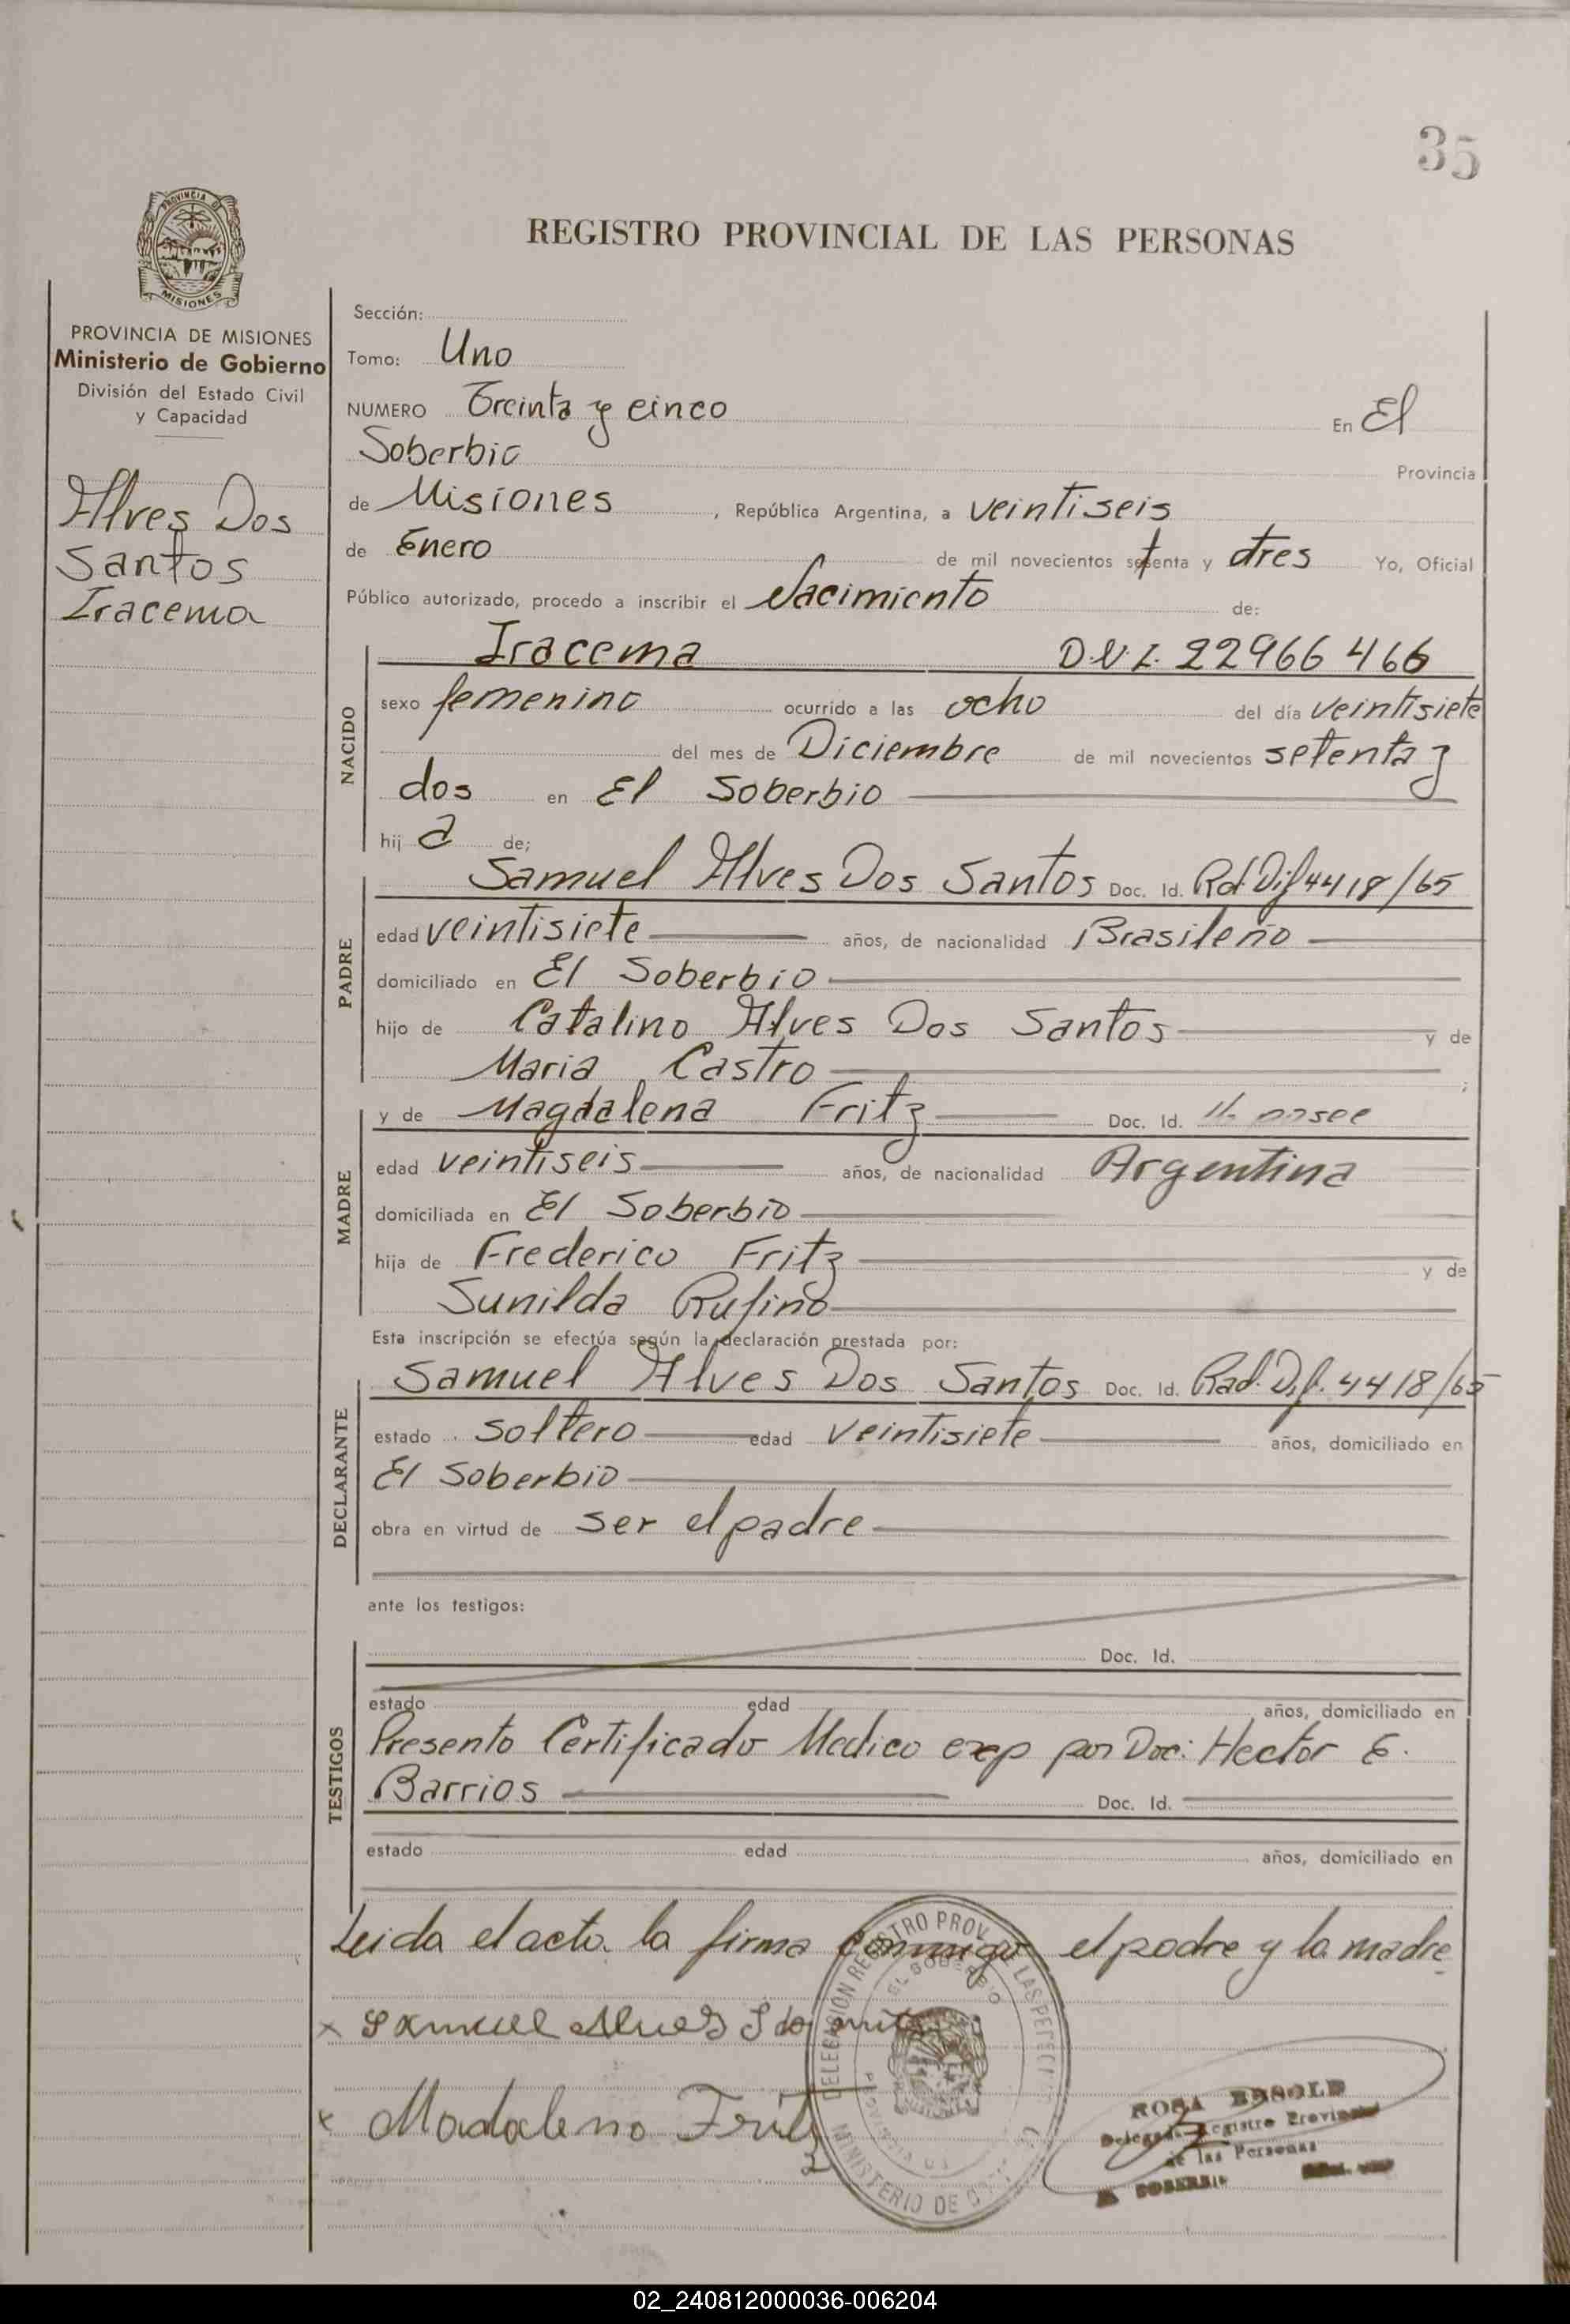 35
PROVINCIA DE
MISIONES
REGISTRO PROVINCIAL DE LAS PERSONAS
PROVINCIA DE MISIONES
Ministerio de Gobierno
División del Estado Civil
y Capacidad
Alves Dos
Santos
Iracema
Sección:
Tomo: Uno
NUMERO Treinta y cinco En El
Soberbio Provincia
de Misiones, República Argentina, a veintiseis
de Enero de mil novecientos setenta y tres Yo, Oficial
Público autorizado, procedo a inscribir el Nacimiento de:
NACIDO
Iracema D.N.I. 22966466
sexo femenino ocurrido a las ocho del día veintisiete
del mes de Diciembre de mil novecientos setenta y
dos en El Soberbio
hij a de;
PADRE
Samuel Alves Dos Santos Doc. Id. Rd. Dif 4418/65
edad veintisiete años, de nacionalidad Brasileño
domiciliado en El Soberbio
hijo de Catalino Alves Dos Santos y de
Maria Castro ;
MADRE
y de Magdalena Fritz Doc. Id. posee
edad veintiseis años, de nacionalidad Argentina
domiciliada en El Soberbio
hija de Frederico Fritz y de
Sunilda Rufino
Esta inscripción se efectúa según la declaración prestada por:
DECLARANTE
Samuel Alves Dos Santos Doc. Id. Rad. Dif. 4418/65
estado soltero edad veintisiete años, domiciliado en
El Soberbio
obra en virtud de ser el padre
ante los testigos:
TESTIGOS
Doc. Id.
estado edad años, domiciliado en
Presento Certificado Medico exp por Doc: Hector E.
Barrios Doc. Id.
estado edad años, domiciliado en
Leida el acto. la firma conmigo el padre y la madre
x Samuel Alves
x Madaleno Fritz
DELEGACION REGISTRO PROV. DE LAS PERS
EL SOBERBIO
MINISTERIO DE
ROSA
Registro Provincial
de las Personas
SOBERBIO
02_240812000036-006204